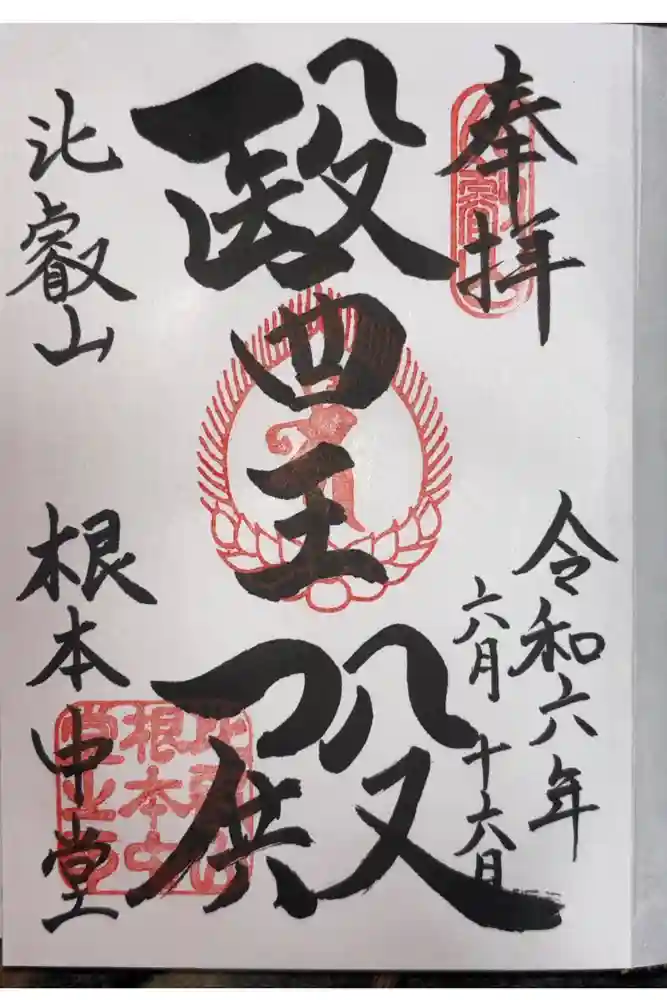 奉拝
令和六年
六月十六日
醫王殿
比叡山
根本中堂
比叡山
根本中
堂之印